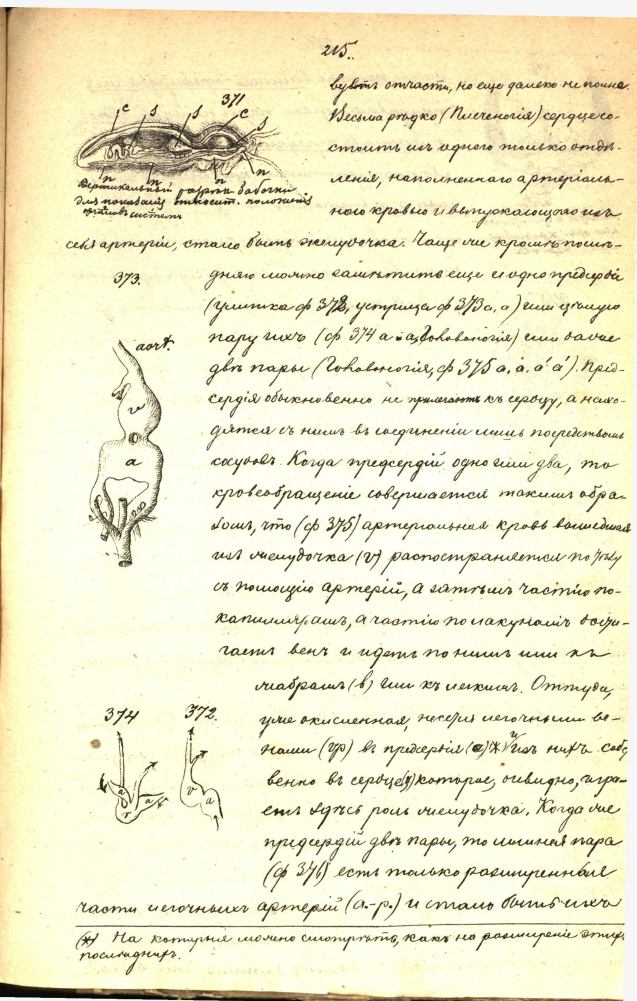 215.
371
c s s c s
n n n n
Вертикальный разрѣзъ бабочки
для показанія относит. положенія
органовъ системъ
вуютъ отчасти, но еще далеко не полна.
Весьма рѣдко (Плеченогія) сердце со-
стоитъ изъ одного только отдѣ-
ленія, наполненнаго артеріаль-
ною кровью и выпускающаго изъ
себя артеріи, стало быть желудочка. Чаще же кромѣ послѣ-
дняго можно замѣтить еще и одно предсердіе
(улитка ф 372, устрица ф 373 a, a) или цѣлую
пару ихъ (ф 374 a и a, ) или даже
двѣ пары (Головоногія, ф 375 a. a. a' a'). Пред-
сердія обыкновенно не прилегаютъ къ сердцу, а нахо-
дятся съ нимъ въ соединеніи лишь посредствомъ
сосудовъ. Когда предсердій одно или два, то
кровеобращеніе совершается такимъ обра-
зомъ, что (ф 375) артеріальная кровь вышедшая
изъ желудочка (v) распостраняется по тѣлу
съ помощію артерій, а затѣмъ частію по-
капиллярамъ, а частію по лакунамъ дости-
гаетъ венъ и идетъ по нимъ или къ
жабрамъ (в) или къ легкимъ. Оттуда,
уже окисленная, несется легочными ве-
нами (vp) въ предсердія (a)* и изъ нихъ собс
венно въ сердце (v) которое, очевидно, игра-
етъ здѣсь роль желудочка. Когда же
предсердій двѣ пары, то лишняя пара
(ф 376) есть только расширенныя
части легочныхъ артерій (a.-p.) и стало быть ихъ
373.
aort.
v
a
374 372.
a v a
v a
(*) На которыя можно смотрѣть, какъ на расширеніе этихъ
послѣднихъ.